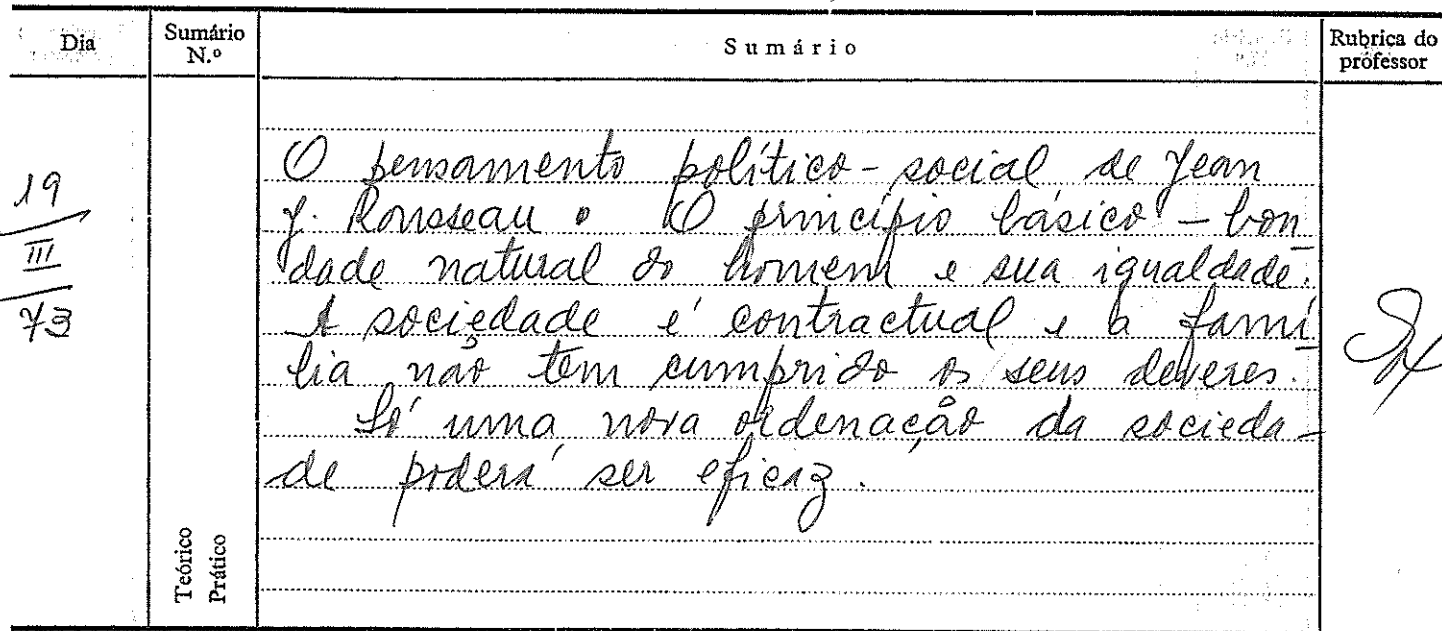 Dia
Sumário N.º
Sumário
Rubrica do professor
19
III
73
O pensamento político-social de Jean
J. Rousseau. O princípio básico - bon
dade natural do homem e sua igualdade.
A sociedade é contractual e a famí
lia não tem cumprido os seus deveres.
Só uma nova ordenação da socieda-
de poderá ser eficaz.
Teórico
Prático